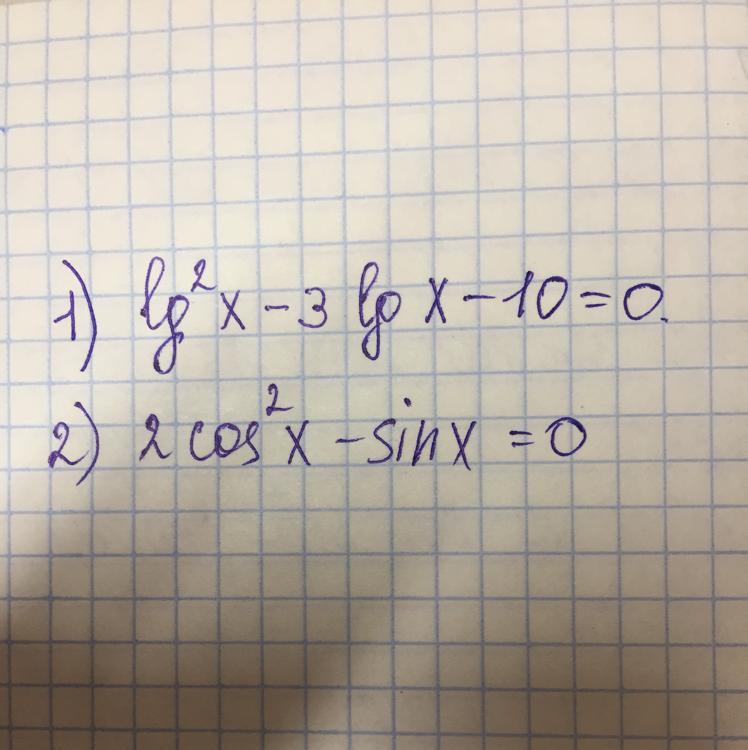 1) lg²x - 3 lg x - 10 = 0.
2) 2 cos²x - sin x = 0